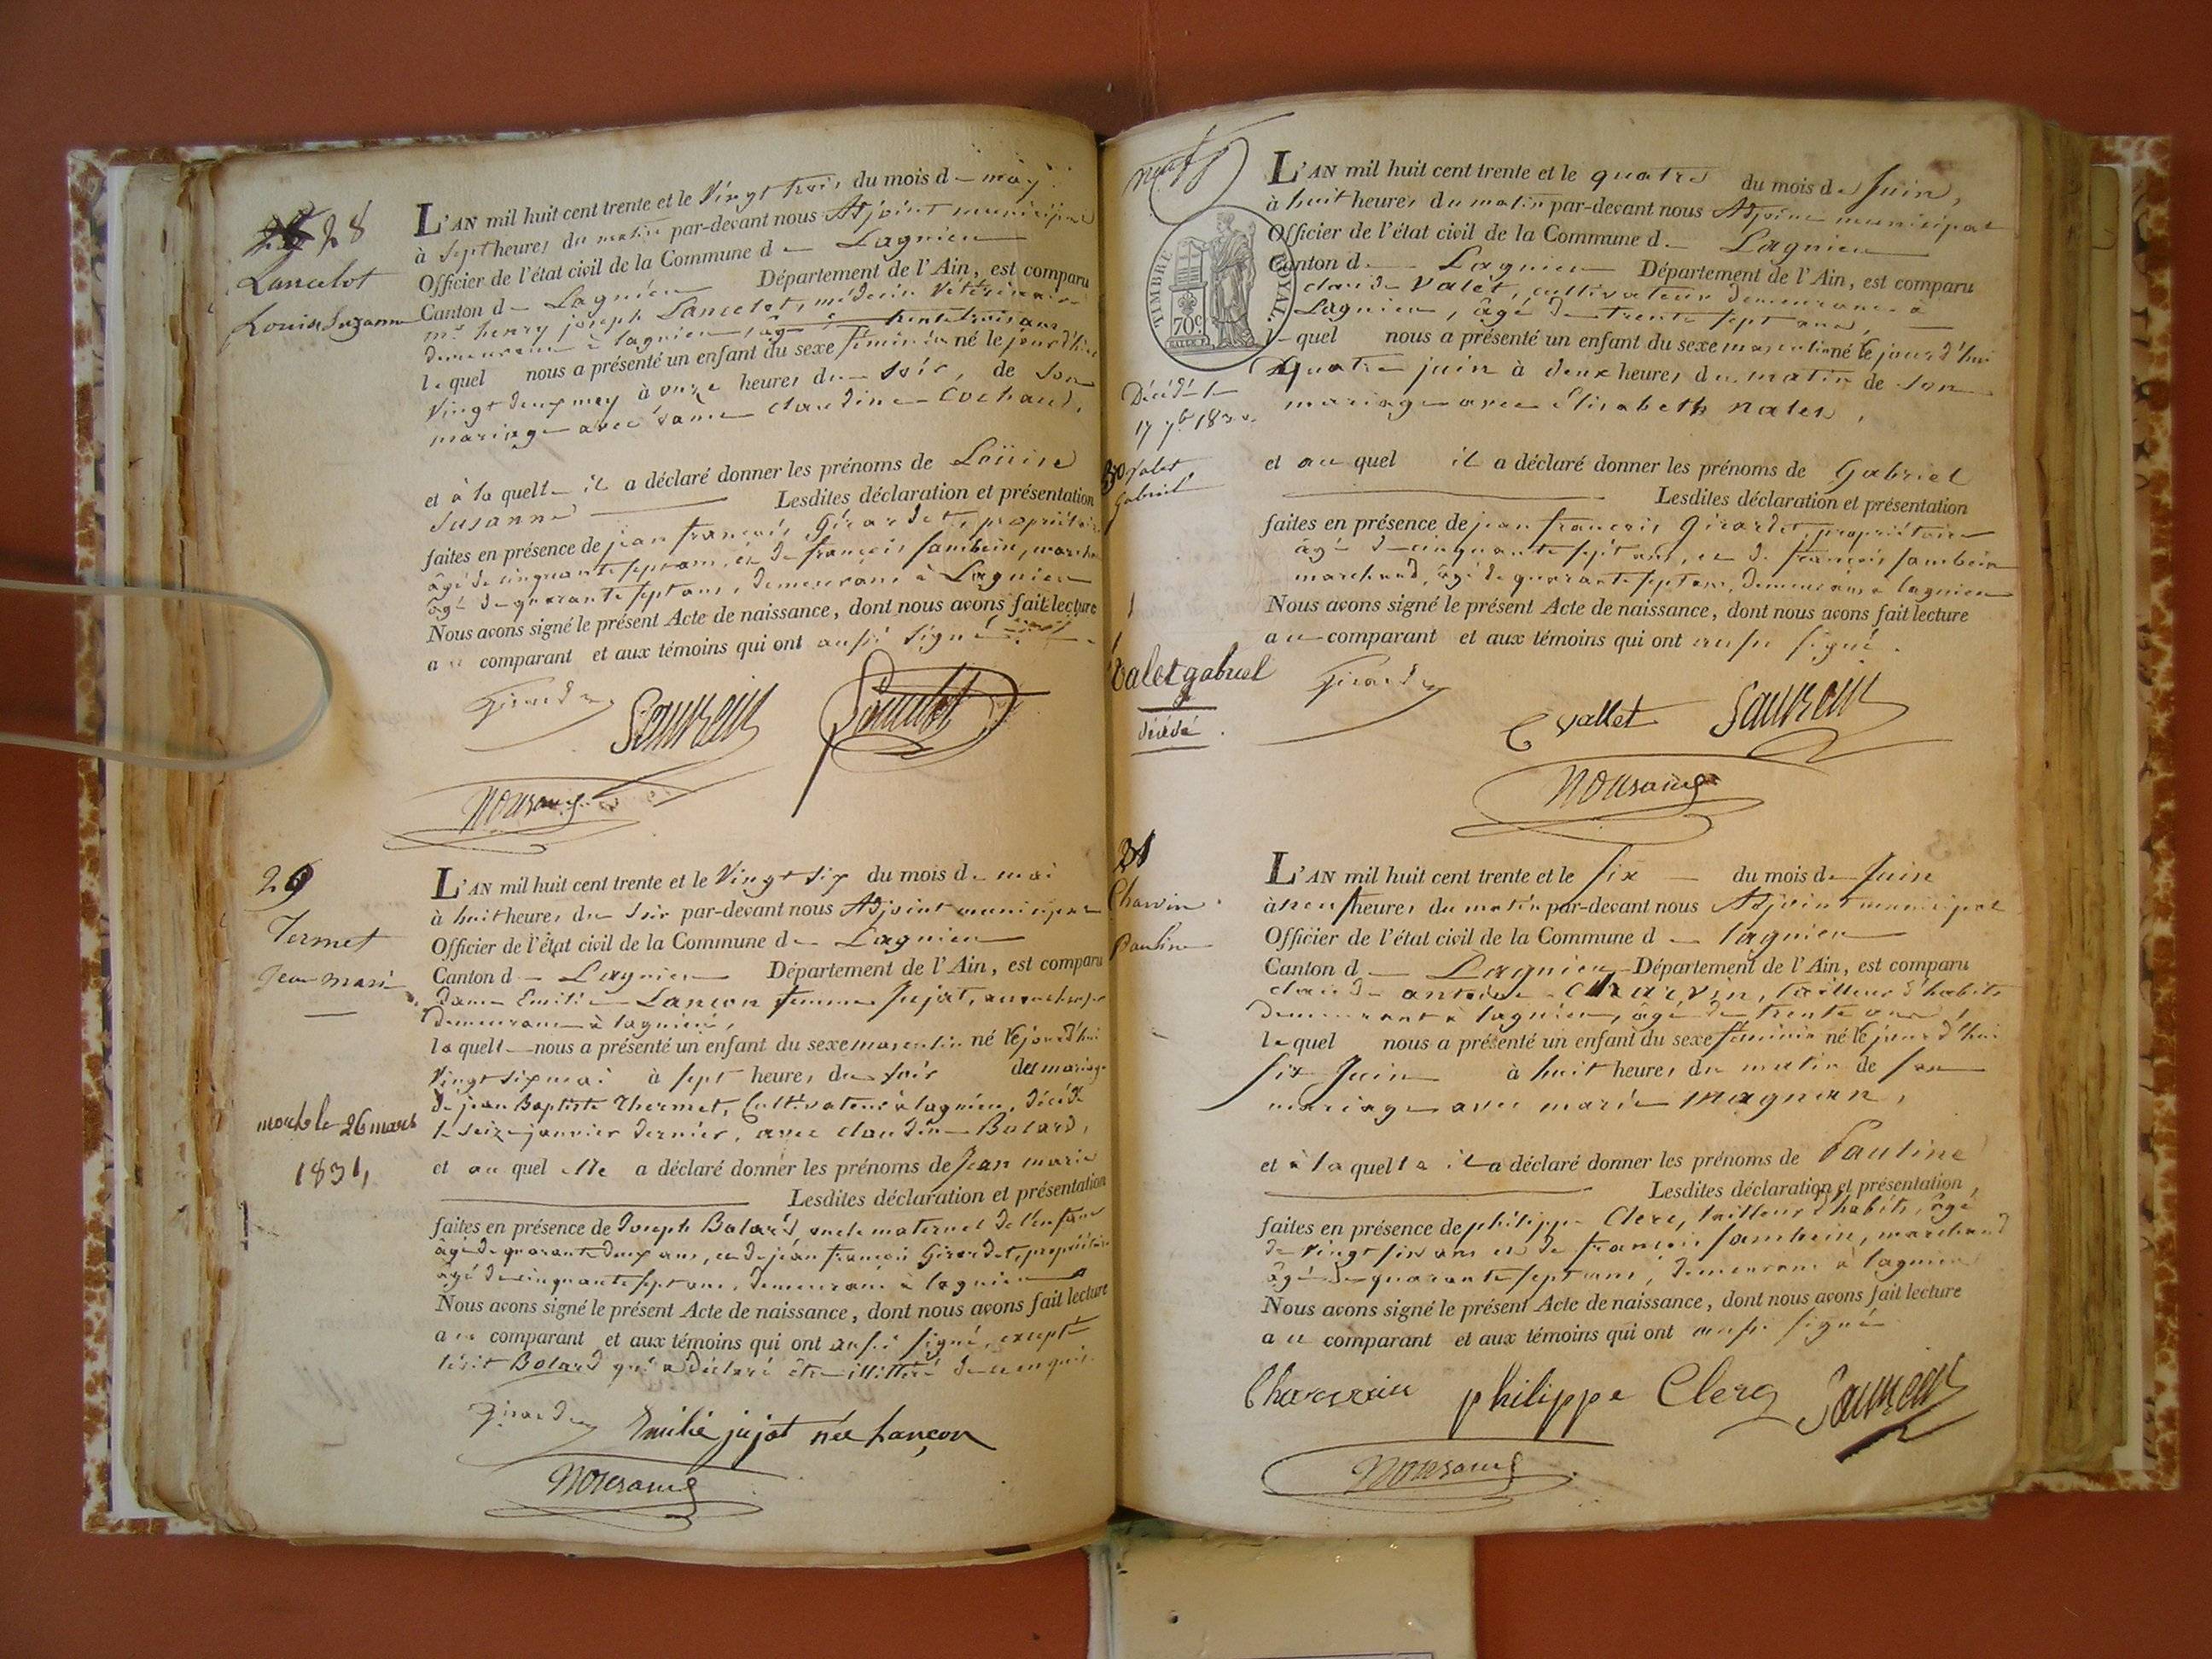 28
Lancelot
Louise Suzanne
L'AN mil huit cent trente et le Vingt trois du mois de may
à sept heures du matin par-devant nous Adjoint municipal
Officier de l'état civil de la Commune de Lagnieu
Canton de Lagnieu Département de l'Ain, est comparu
mr henry joseph Lancelot, médecin Vétérinaire
demeurant à lagnieu, âgé de trente trois ans
lequel nous a présenté un enfant du sexe féminin né le jour d'hier
Vingt deux may à onze heures du soir, de son
mariage avec dame claudine Cochaud,
et à la quelle il a déclaré donner les prénoms de Loüise
Susanne Lesdites déclaration et présentation
faites en présence de jean françois Girardet, propriétaire
âgé de cinquante sept ans, et de françois Sambein, marchand
âgé de quarante sept ans, demeurans à Lagnieu
Nous avons signé le présent Acte de naissance, dont nous avons fait lecture
au comparant et aux témoins qui ont aussi signé
29
Termet
Jean marie
mort le 26 mars
1831,
L'AN mil huit cent trente et le Vingt six du mois de mai
à huit heures du soir par-devant nous Adjoint municipal
Officier de l'état civil de la Commune de Lagnieu
Canton de Lagnieu Département de l'Ain, est comparu
dame Emilie Lançon femme Jujat,
demeurant à lagnieu,
laquelle nous a présenté un enfant du sexe masculin né le jour d'hui
Vingt six mai à sept heures du soir du mariage
de jean Baptiste Thermet, Cultivateur à lagnieu, décédé
le seize janvier dernier, avec claudine Bolard,
et au quel elle a déclaré donner les prénoms de Jean marie
Lesdites déclaration et présentation
faites en présence de Joseph Bolard oncle maternel de l'enfant
âgé de quarante deux ans, et de jean françois Girardet, propriétaire
âgé de cinquante sept ans, demeurans à lagnieu
Nous avons signé le présent Acte de naissance, dont nous avons fait lecture
au comparant et aux témoins qui ont aussi signé, excepté
ledit Bolard qui a déclaré être illittéré de ce enquis.
Emilie jujat née Lançon
TIMBRE ROYAL
70c
Décédé le
17 7bre 1830
30 Valet
Gabriel
Valet gabriel
décédé
L'AN mil huit cent trente et le quatre du mois de Juin,
à huit heures du matin par-devant nous Adjoint municipal
Officier de l'état civil de la Commune de Lagnieu
Canton de Lagnieu Département de l'Ain, est comparu
claude Valet, cultivateur demeurant à
Lagnieu, âgé de trente sept ans,
lequel nous a présenté un enfant du sexe masculin né le jour d'hui
quatre juin à deux heures du matin de son
mariage avec Elisabeth nalet,
et au quel il a déclaré donner les prénoms de Gabriel
Lesdites déclaration et présentation
faites en présence de jean françois Girardet, propriétaire
âgé de cinquante sept ans, et de françois Sambein
marchand, âgé de quarante sept ans, demeurans à lagnieu
Nous avons signé le présent Acte de naissance, dont nous avons fait lecture
au comparant et aux témoins qui ont aussi signé.
C vallet
31
Charvin
Pauline
L'AN mil huit cent trente et le six du mois de Juin
à neuf heures du matin par-devant nous Adjoint municipal
Officier de l'état civil de la Commune de lagnieu
Canton de Lagnieu Département de l'Ain, est comparu
claude antoine Charvin, tailleur d'habits
demeurant à lagnieu, âgé de trente ans,
lequel nous a présenté un enfant du sexe féminin né le jour d'hui
six Juin à huit heures du matin de son
mariage avec marie magnan,
et à la quelle il a déclaré donner les prénoms de Pauline
Lesdites déclaration et présentation
faites en présence de philippe Clerc, tailleur d'habits, âgé
de vingt six ans et de françois Sambein, marchand
âgé de quarante sept ans, demeurans à lagnieu
Nous avons signé le présent Acte de naissance, dont nous avons fait lecture
au comparant et aux témoins qui ont aussi signé
Charvin philippe Clerc